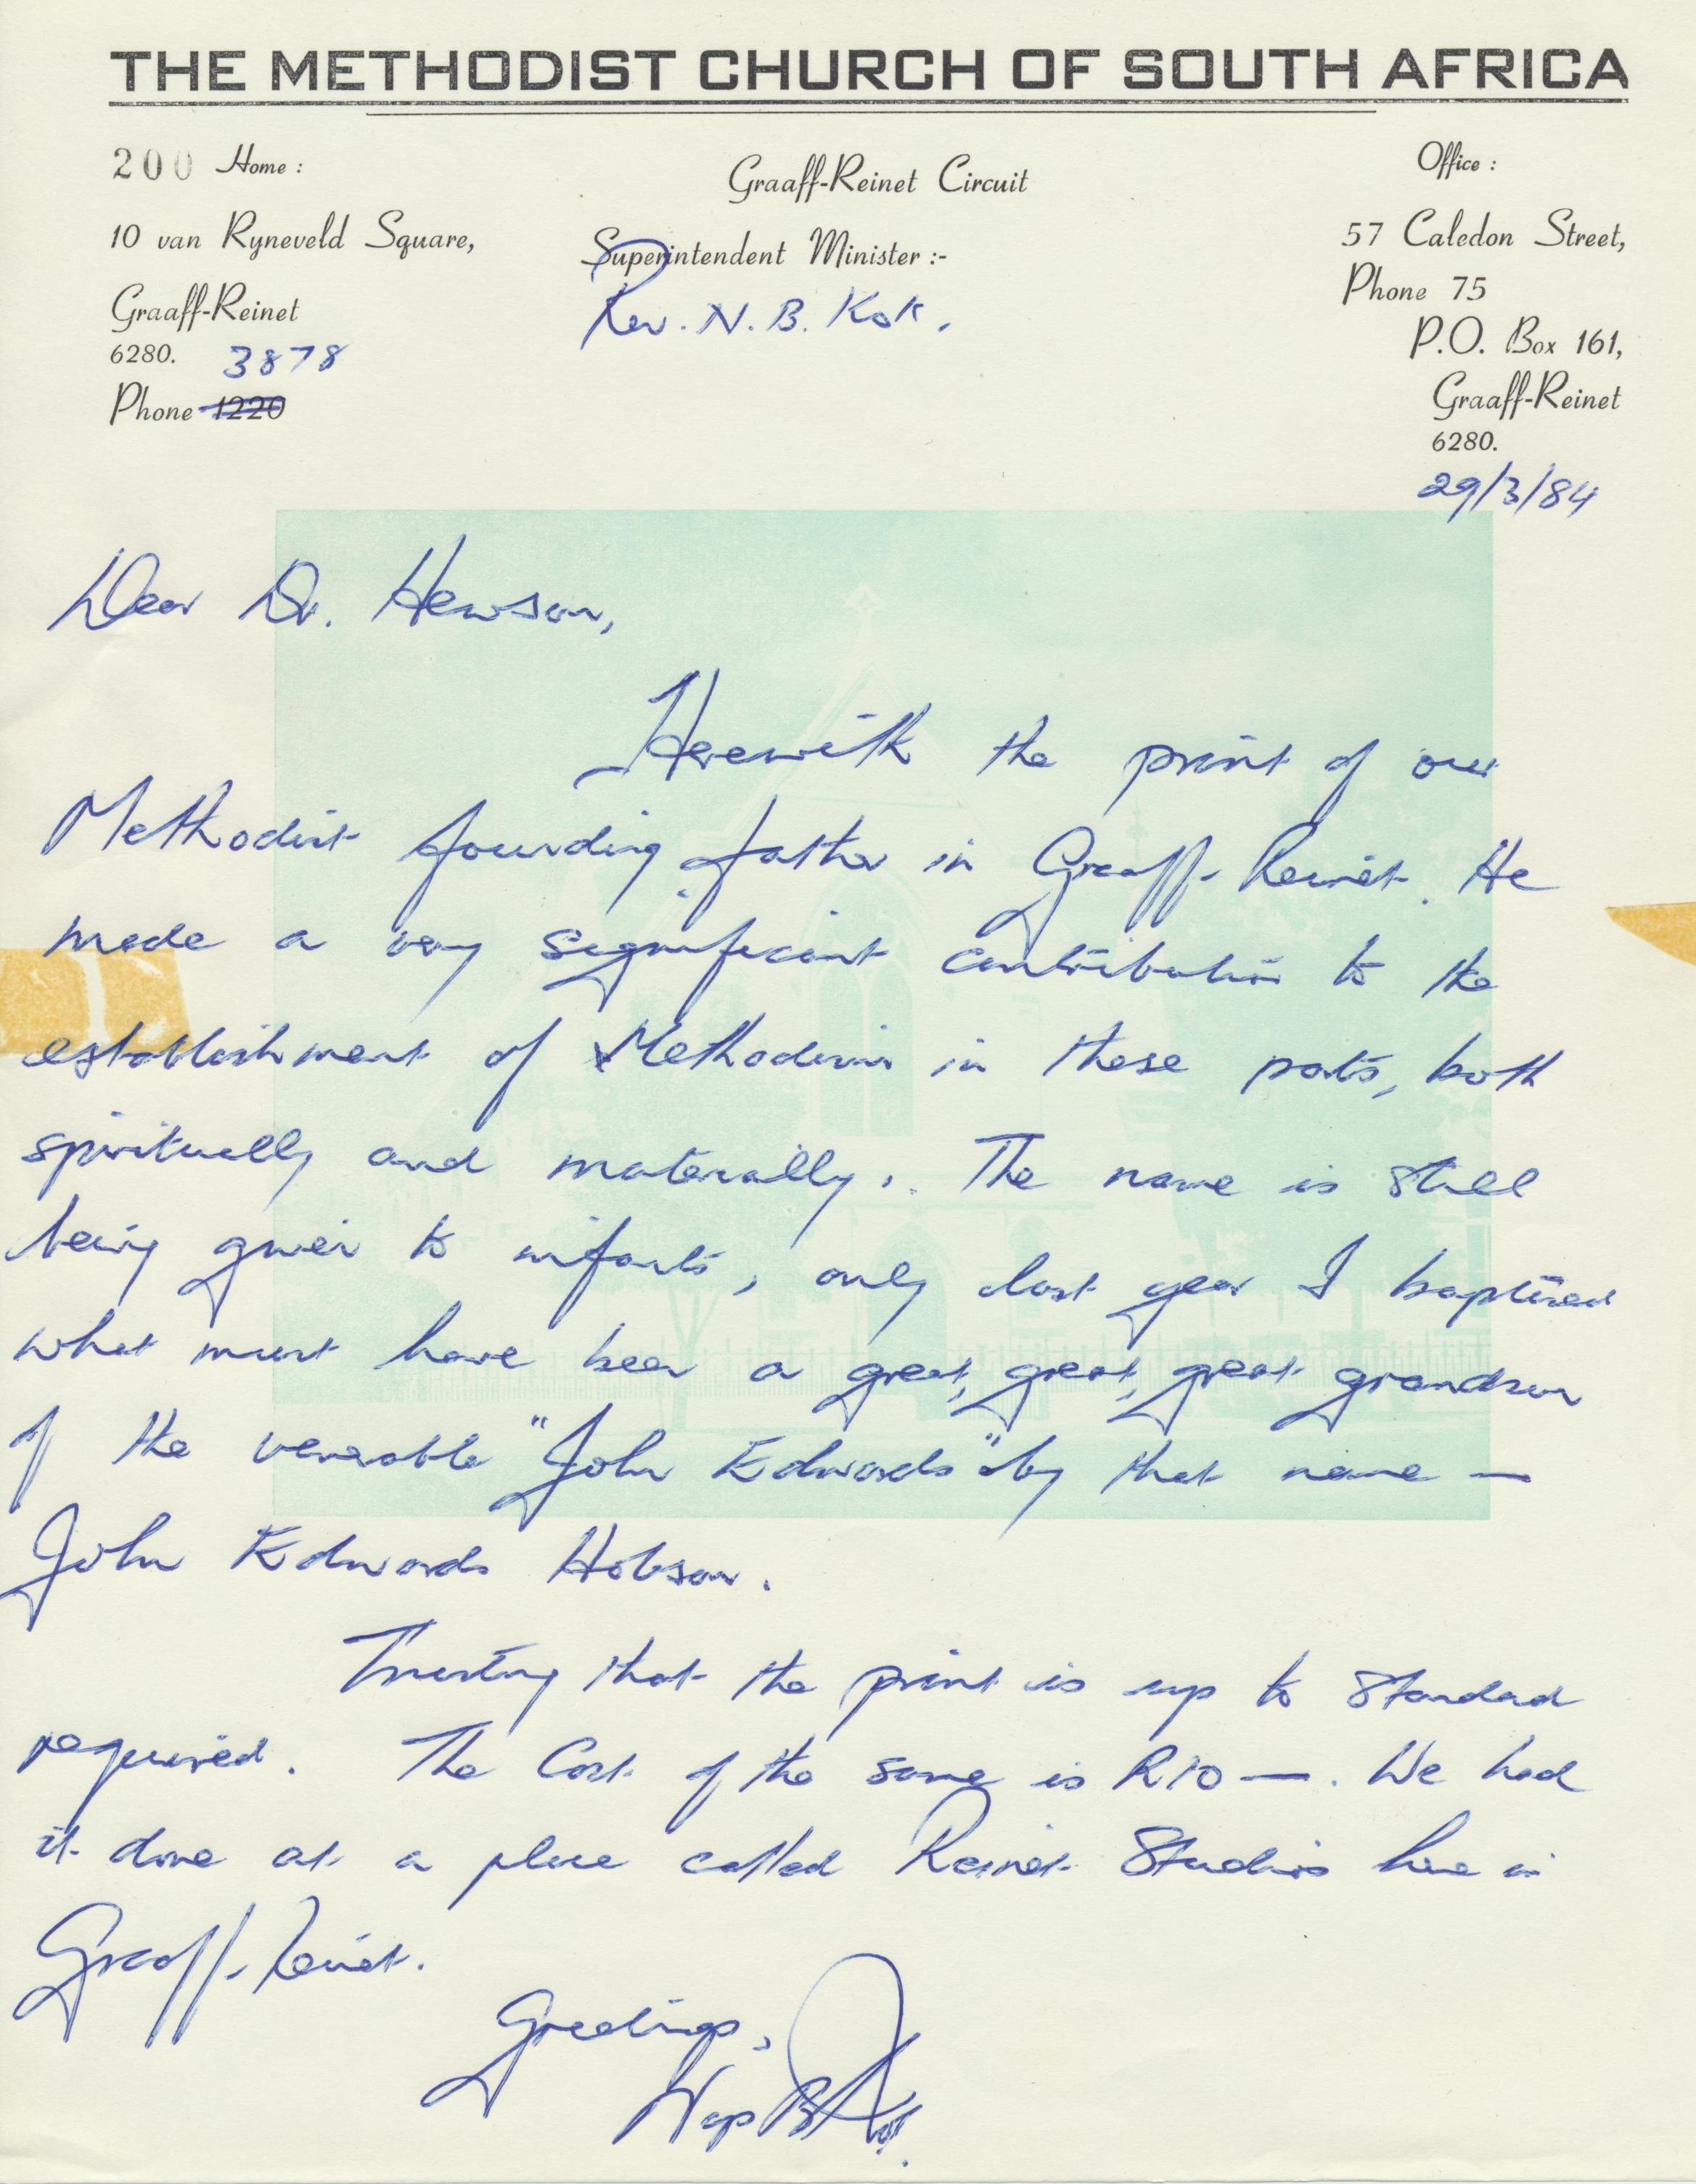 THE METHODIST CHURCH OF SOUTH AFRICA
200 Home :
10 van Ryneveld Square,
Graaff-Reinet
6280. 3878
Phone 1220
Graaff-Reinet Circuit
Superintendent Minister :-
Rev. N. B. Kok.
Office :
57 Caledon Street,
Phone 75
P.O. Box 161,
Graaff-Reinet
6280.
29/3/84
Dear Dr. Hewson,
Herewith the print of our
Methodist founding father in Graaff-Reinet. He
made a very significant contribution to the
establishment of Methodism in these parts, both
spiritually and materially. The name is still
being given to infants, only last year I baptised
what must have been a great, great, great grandson
of the venerable "John Edwards" by that name —
John Edwards Hobson.
Trusting that the print is up to standard
required. The Cost of the same is R10 —. We had
it done at a place called Reinet Studios here in
Graaff-Reinet.
Greetings,